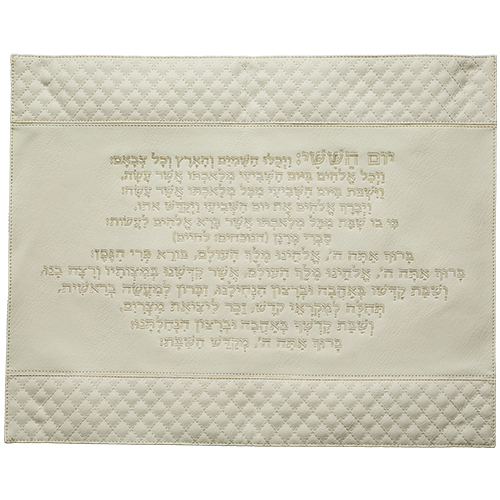 יוֹם הַשִּׁשִּׁי: וַיְכֻלּוּ הַשָּׁמַיִם וְהָאָרֶץ וְכָל צְבָאָם:
וַיְכַל אֱלֹהִים בַּיּוֹם הַשְּׁבִיעִי מְלַאכְתּוֹ אֲשֶׁר עָשָׂה,
וַיִּשְׁבֹּת בַּיּוֹם הַשְּׁבִיעִי מִכָּל מְלַאכְתּוֹ אֲשֶׁר עָשָׂה:
וַיְבָרֶךְ אֱלֹהִים אֶת יוֹם הַשְּׁבִיעִי וַיְקַדֵּשׁ אֹתוֹ,
כִּי בוֹ שָׁבַת מִכָּל מְלַאכְתּוֹ אֲשֶׁר בָּרָא אֱלֹהִים לַעֲשׂוֹת:
סַבְרִי מָרָנָן (הנוכחים: לחיים)
בָּרוּךְ אַתָּה ה', אֱלֹהֵינוּ מֶלֶךְ הָעוֹלָם, בּוֹרֵא פְּרִי הַגֶּפֶן:
בָּרוּךְ אַתָּה ה', אֱלֹהֵינוּ מֶלֶךְ הָעוֹלָם, אֲשֶׁר קִדְּשָׁנוּ בְּמִצְוֹתָיו וְרָצָה בָנוּ,
וְשַׁבַּת קָדְשׁוֹ בְּאַהֲבָה וּבְרָצוֹן הִנְחִילָנוּ, זִכָּרוֹן לְמַעֲשֵׂה בְרֵאשִׁית,
תְּחִלָּה לְמִקְרָאֵי קֹדֶשׁ, זֵכֶר לִיצִיאַת מִצְרַיִם,
וְשַׁבַּת קָדְשְׁךָ בְּאַהֲבָה וּבְרָצוֹן הִנְחַלְתָּנוּ:
בָּרוּךְ אַתָּה ה', מְקַדֵּשׁ הַשַּׁבָּת: